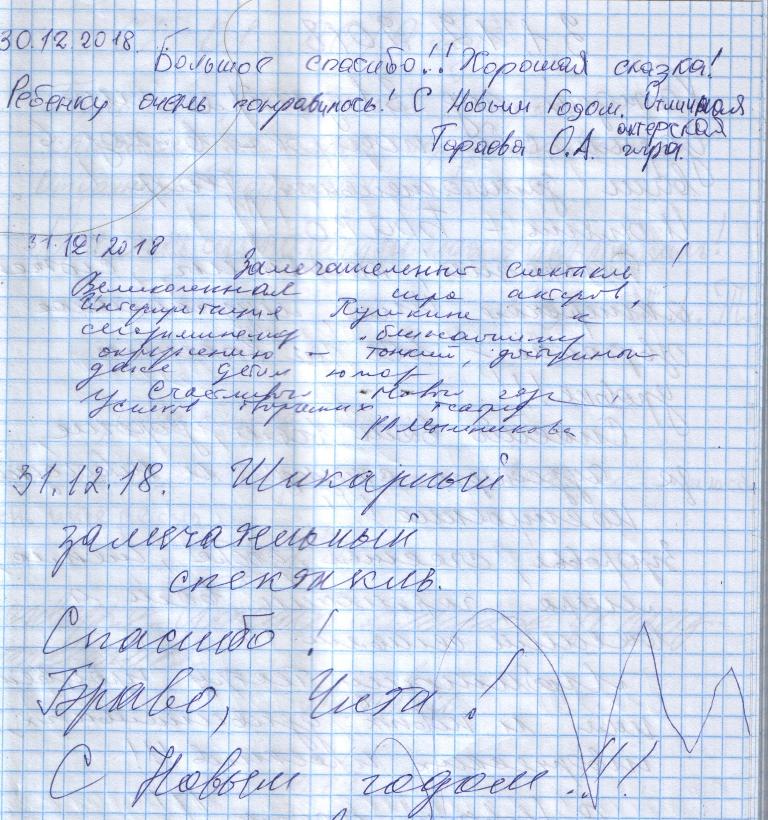 30.12.2018. Большое спасибо!! Хорошая сказка!
Ребенку очень понравилось! С Новым Годом. Отличная
актерская
Тараева О.А. игра.
31.12 2018
Замечательный спектакль!
Великолепная игра актеров,
интерпретация Пушкина к
окружению – тонкий, доступный
даже детям юмор
Счастливого Нового года,
Успехов творческих театру
Мынникова
31.12.18. Шикарный
замечательный
спектакль.
Спасибо!
Браво, Чита!
С Новым годом!!!